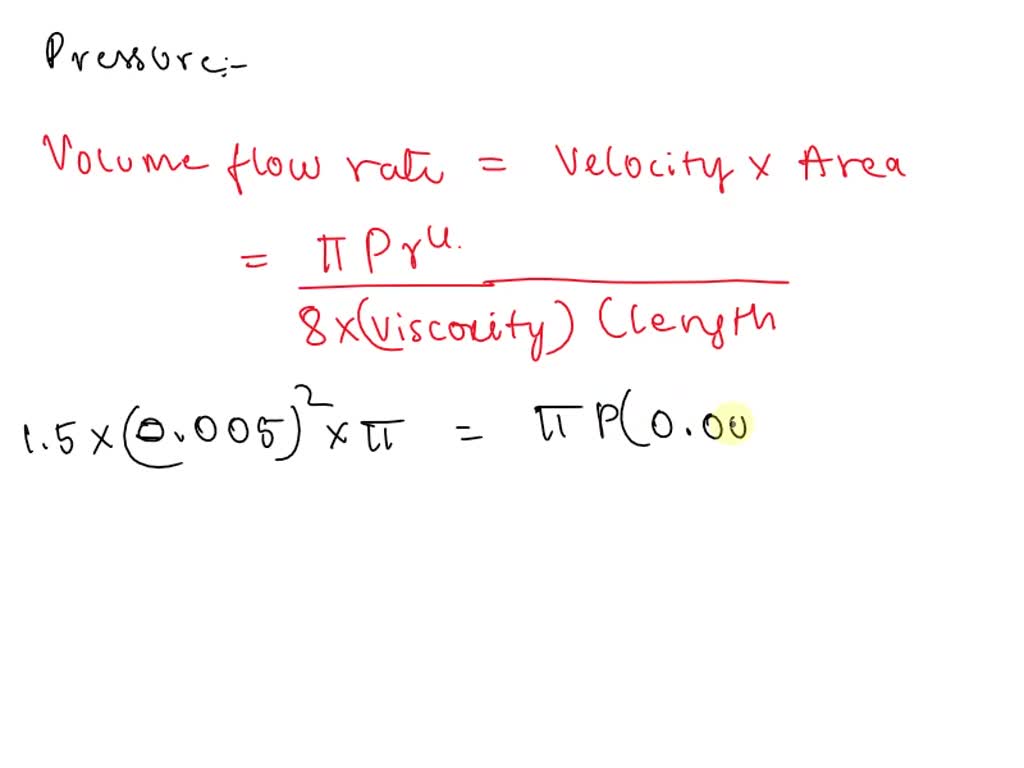 Pressure:-
Volume flow rate = Velocity x Area
= π P r⁴.
8 x (Viscosity) (length
1.5 x (0.005)² x π = π P(0.00